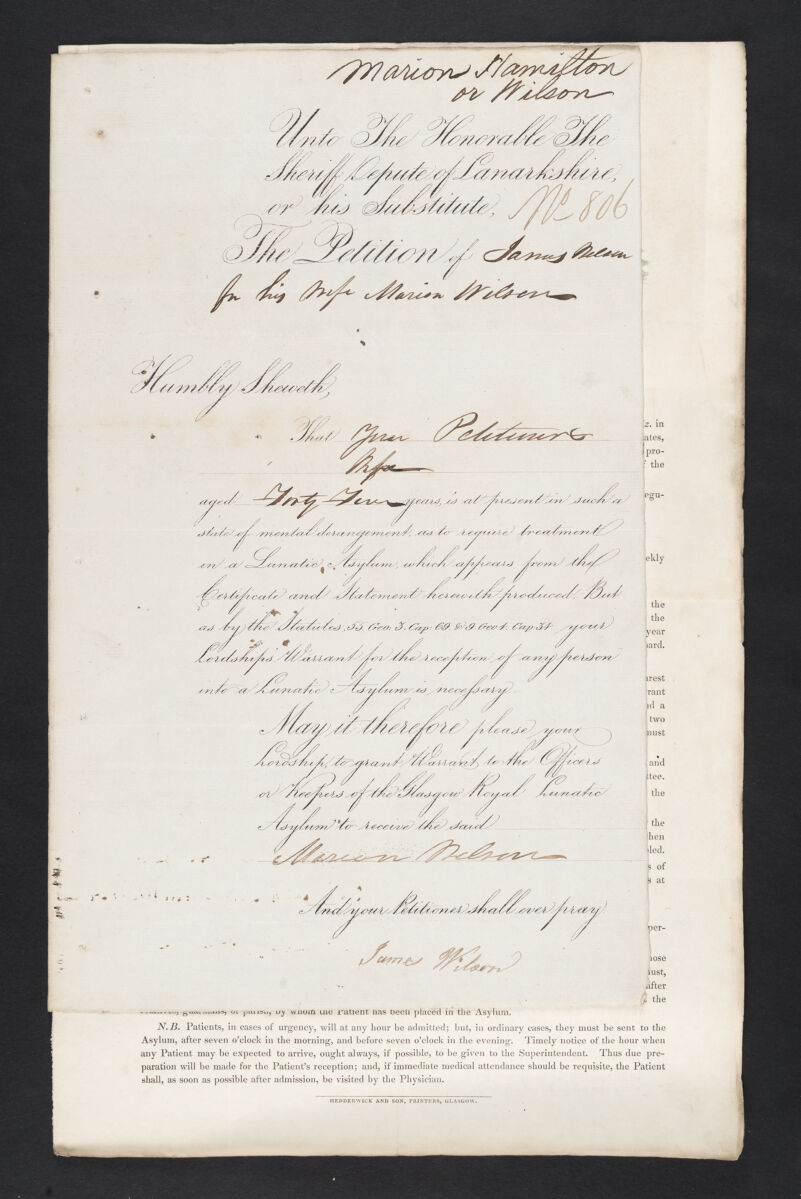 Marion Hamilton
or Wilson
Unto The Honorable The
Sheriff Depute of Lanarkshire,
or his Substitute,
No 806
The Petition of James Wilson
for his Wife Marion Wilson
Humbly Sheweth,
That Your Petitioner's
Wife
aged Forty years, is at present in such a
state of mental derangement, as to require treatment
in a Lunatic Asylum, which appears from the
Certificate and Statement herewith produced. But
as by the Statutes, 55. Geo. 3. Cap. 69. & 9. Geo. 4. Cap. 34 your
Lordship's Warrant for the reception of any person
into a Lunatic Asylum is necessary
May it therefore please your
Lordship, to grant Warrant to the Officers
or Keepers of the Glasgow Royal Lunatic
Asylum to receive the said
Marion Wilson
And your Petitioner shall ever pray
James Wilson
in
ates,
pro-
the
egu-
ekly
the
the
year
ard.
arest
rant
nd a
two
must
and
tee.
the
the
hen
led.
s of
s at
per-
hose
ust,
after
the
by whom the Patient has been placed in the Asylum.
N.B. Patients, in cases of urgency, will at any hour be admitted; but, in ordinary cases, they must be sent to the
Asylum, after seven o'clock in the morning, and before seven o'clock in the evening. Timely notice of the hour when
any Patient may be expected to arrive, ought always, if possible, to be given to the Superintendent. Thus due pre-
paration will be made for the Patient's reception; and, if immediate medical attendance should be requisite, the Patient
shall, as soon as possible after admission, be visited by the Physician.
HEDDERWICK AND SON, PRINTERS, GLASGOW.